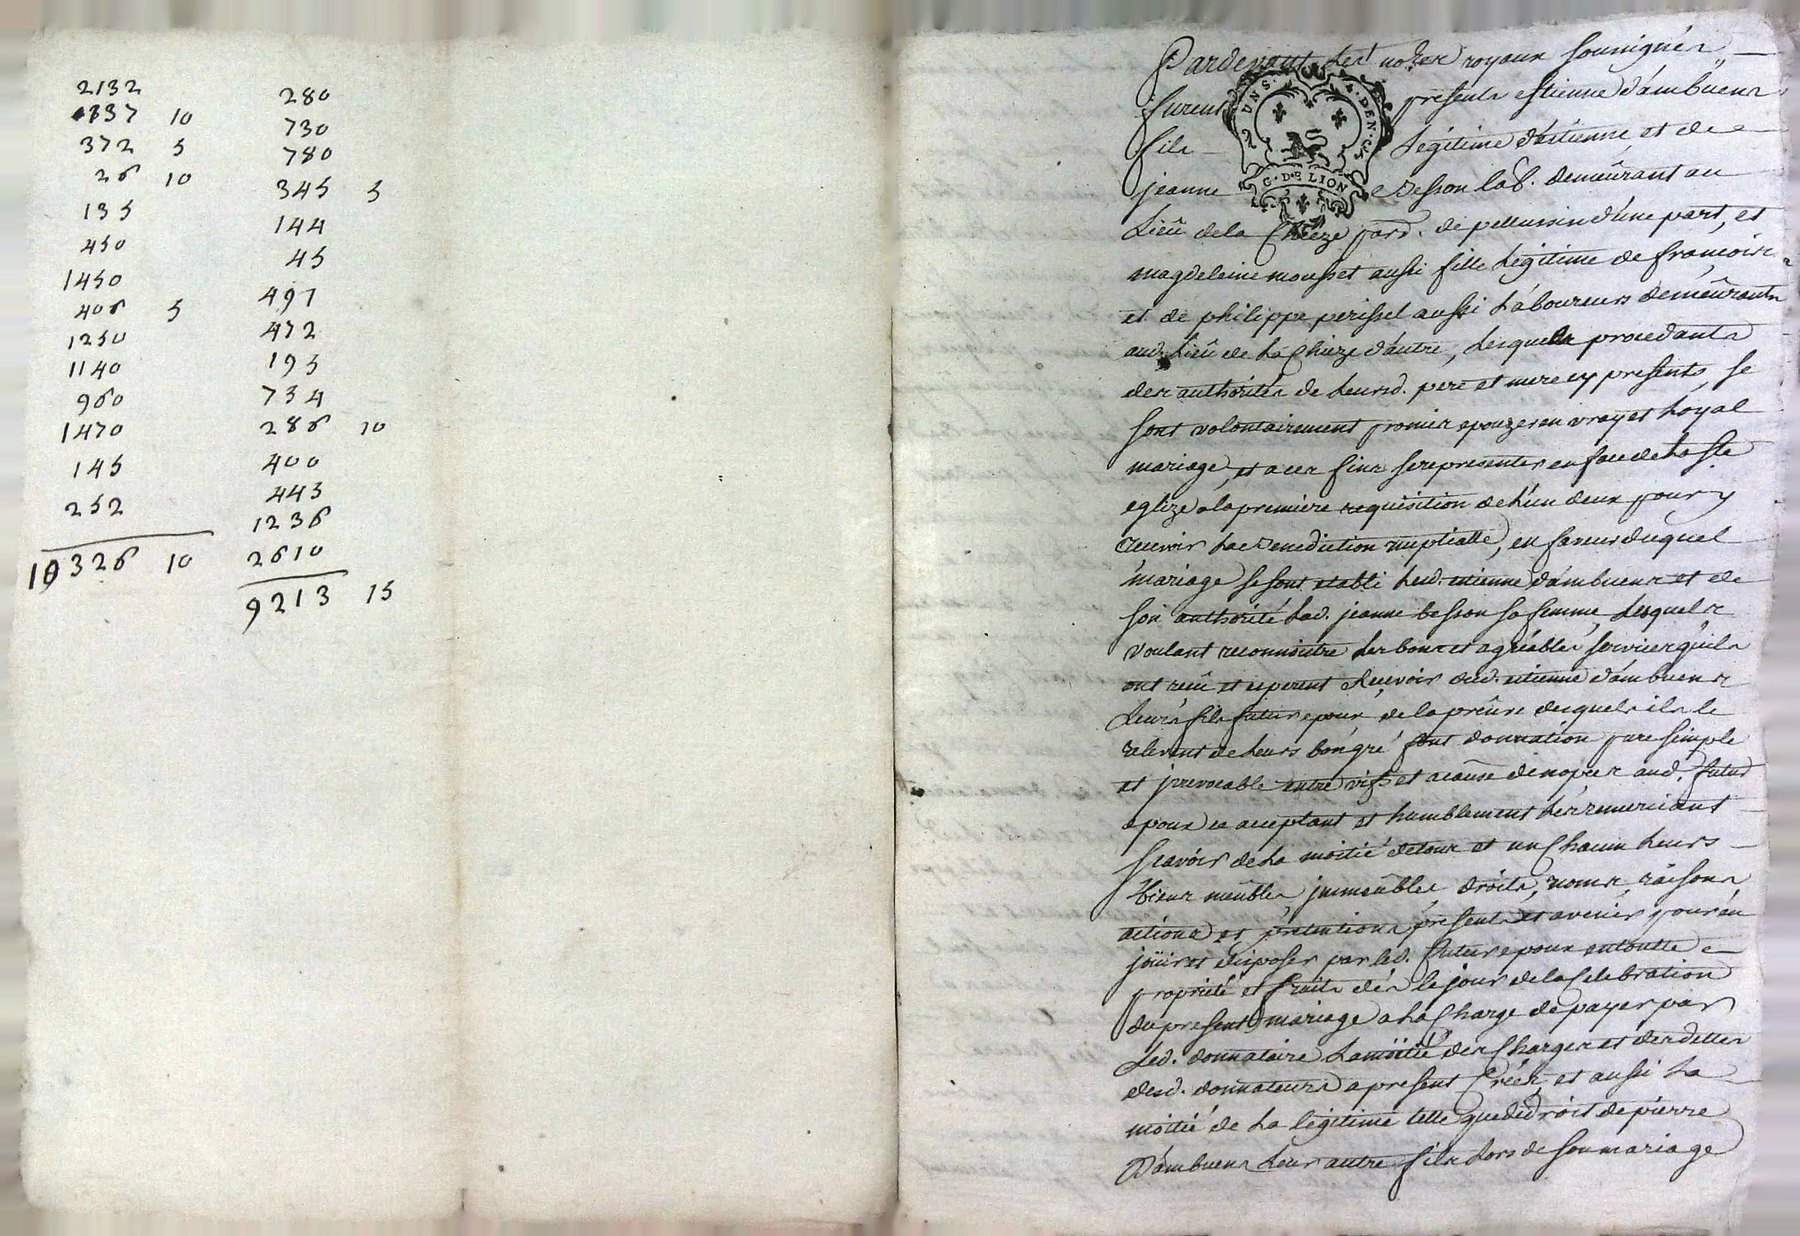 2132
1337 10
372 5
26 10
135
450
1450
406 5
1250
1140
960
1470
145
252
10326 10
280
730
780
345 5
144
45
497
472
195
734
286 10
400
443
1236
2610
9213 15
UN S. 4. DEN.
G. DE LION
Pardevant les no.res royaux soussignés
furent presents estienne d'ambuens
fils legitime d'estienne et de
jeanne Besson lab. demeurant au
Lieû de la Chieze parr. de pellussin d'une part, et
magdeleine mousset aussi fille legitime de francoise
et de philippe perissel aussi Laboureurs demeûrants
aud. Lieû de La Chieze d'autre, Lesquels procedants
des authorités de Leursd. pere et mere cy presents, se
sont volontairement promis epouzer en vray et Loyal
mariage, et a ces fins se representer en face de La Ste
eglize a la premiere requisition de L'un deux pour y
recevoir La Benediction nuptialle, en faveur duquel
mariage se sont etabli Led. estienne d'ambuens et de
son authorité Lad. jeanne besson sa femme, Lesquels
voulant reconnoitre Les bons et agréables services quils
ont reçû et esperent recevoir dud. estienne d'ambuens
Leurs fils futur epoux de la preûve desquels ils le
relevent de Leurs bon gré font donnation pure simple
et jrrevocable entre vifs et a cause de nopces aud. futur
epoux ce acceptant et humblement Les remerciant
scavoir de La moitié de tous et un Chacun Leurs
Biens meûbles jmmeûbles droits, noms, raisons
actions et pretentions presents et avenir pour en
joüir et disposer par led. futur epoux en toutte
proprieté et fruits dés le jour de la Celebration
du present mariage a La Charge de payer par
Led. donnataire La moitié des Charges et des dettes
desd. donnateurs a present Créés, et aussi La
moitié de La legitime telle que de droit de pierre
D'ambuens Leur autre fils Lors de son mariage